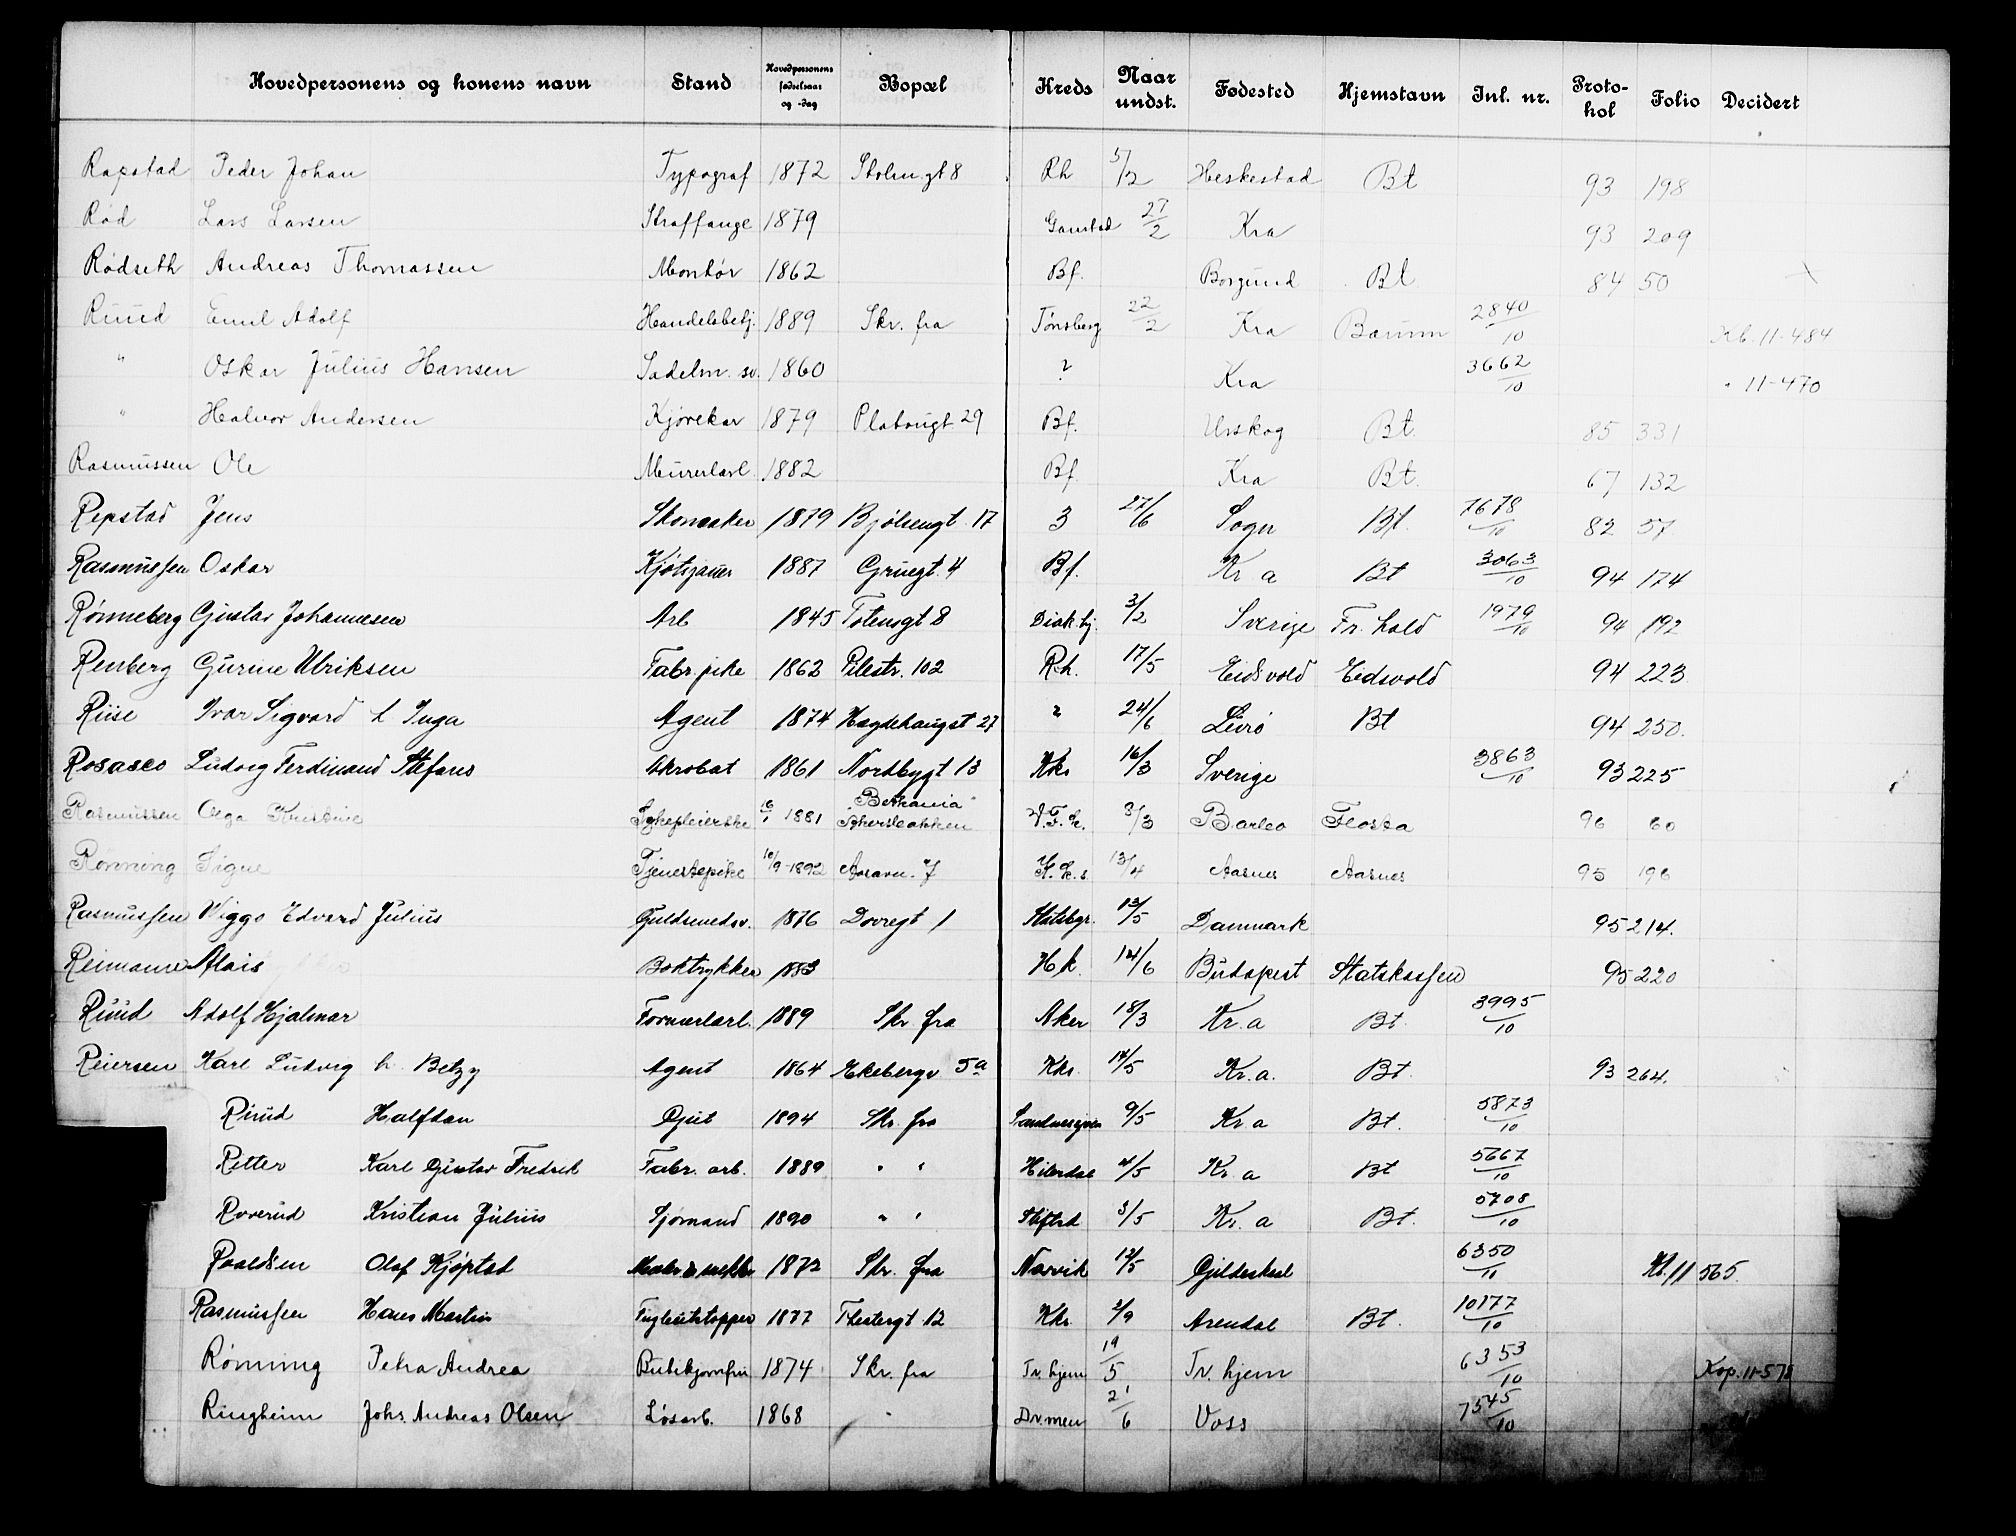 Hovedpersonens og konens navn Stand Hovedpersonens fødselsaar og -dag Bopæl Kreds Naar undst. Fødested Hjemstavn Inl. nr. Protokol Folio Decidert
Rapstad Peder Johan Typograf 1872 Stolmgt 8 Rh 5/2 Heskestad Bt 93 198
Rød Lars Larsen Straffange 1879 27/2 Kra 93 209
Rødseth Andreas Thomassen Montør 1862 Bf. Borgund Bt 84 50
Ruud Emil Adolf Handelsbetj. 1889 Skr. fra Tønsberg 22/2 Kra Bærum 2840/10 Kb. 11-484
" Oskar Julius Hansen Sadelm. sv. 1860 ? Kra 3662/10 " 11-470
" Halvor Andersen Kjørekar 1879 Platougt 29 Bf. Urskog Bt. 85 331
Rasmussen Ole Murerlærl. 1882 Bf. Kra Bt. 67 132
Repstad Jens Skomaker 1879 Bjølsengt. 17 3 27/6 Sogn Bt. 7678/10 82 57
Rasmussen Oskar 1887 Gruegt. 4 Bf. Kr a Bt 3063/10 94 174
Rønneberg Gustav Johannesen Arb 1845 Totensgt 8 Diak.hj. 3/2 Sverige Fr. hald 1979/10 94 192
Renberg Gurine Ulriksen Fabr. pike 1862 Pilestr. 102 R.h. 17/5 Eidsvold Eidsvold 94 223
Riise Ivar Sigvard h Inga Agent 1874 Hægdehaugst 27 " 24/6 Bt 94 250.
Rosasco Ludvig Ferdinand Stefans Akrobat 1861 Nordbygt 13 Kks 16/3 Sverige 3863/10 93 225
Rasmussen Olga Kristine Sykepleierske 1881 "Betania" Akersbakken V.F.k. 3/3 Barbo Flosta 96 60
Rønning Signe Tjenestepike 10/9-1892 Aasavn. 7 13/4 Aasnes Aasnes 95 196
Rasmussen Wiggo Edvard Julius Guldsmedsv. 1876 Dovregt 1 Statsbgr. 13/5 Danmark 95 214.
Reimann Alois Boktrykker 1883 H k. 14/6 Budapest Statskassen 95 220
Ruud Adolf Hjalmar Formerlærl. 1889 Skr. fra Aker 18/3 Kr. a Bt. 3995/10
Reiersen Karl Ludvig h. Betzy Agent 1864 Ekebergv 5a Kks. 14/5 Kr. a. Bt. 93 264.
Ruud Halfdan Gjut 1894 Skr. fra 9/5 Kr. a Bt. 5873/10
Retter Karl Gustav Fredrik Fabr. arb. 1889 " " Hiterdal 4/5 Kr. a Bt 5667/10
Roverud Kristian Julius Sjømand 1890 " " 3/5 Kr. a Bt. 5708/10
Olaf Kjøpstad 1872 Skr. fra Narvik 12/5 Gildeskaal 6350/10 Kb. 11 565.
Rasmussen Hans Martin 1877 Kks 2/9 Arendal Bt. 10177/10
Rønning Petra Andrea 1874 Skr. fra Tv. hjem 19/5 Tv. hjem 6353/10 Kop. 11-578
Ringheim Johs. Andreas Olsen Løsarb. 1868 " Dr.men 21/6 Voss 7545/10